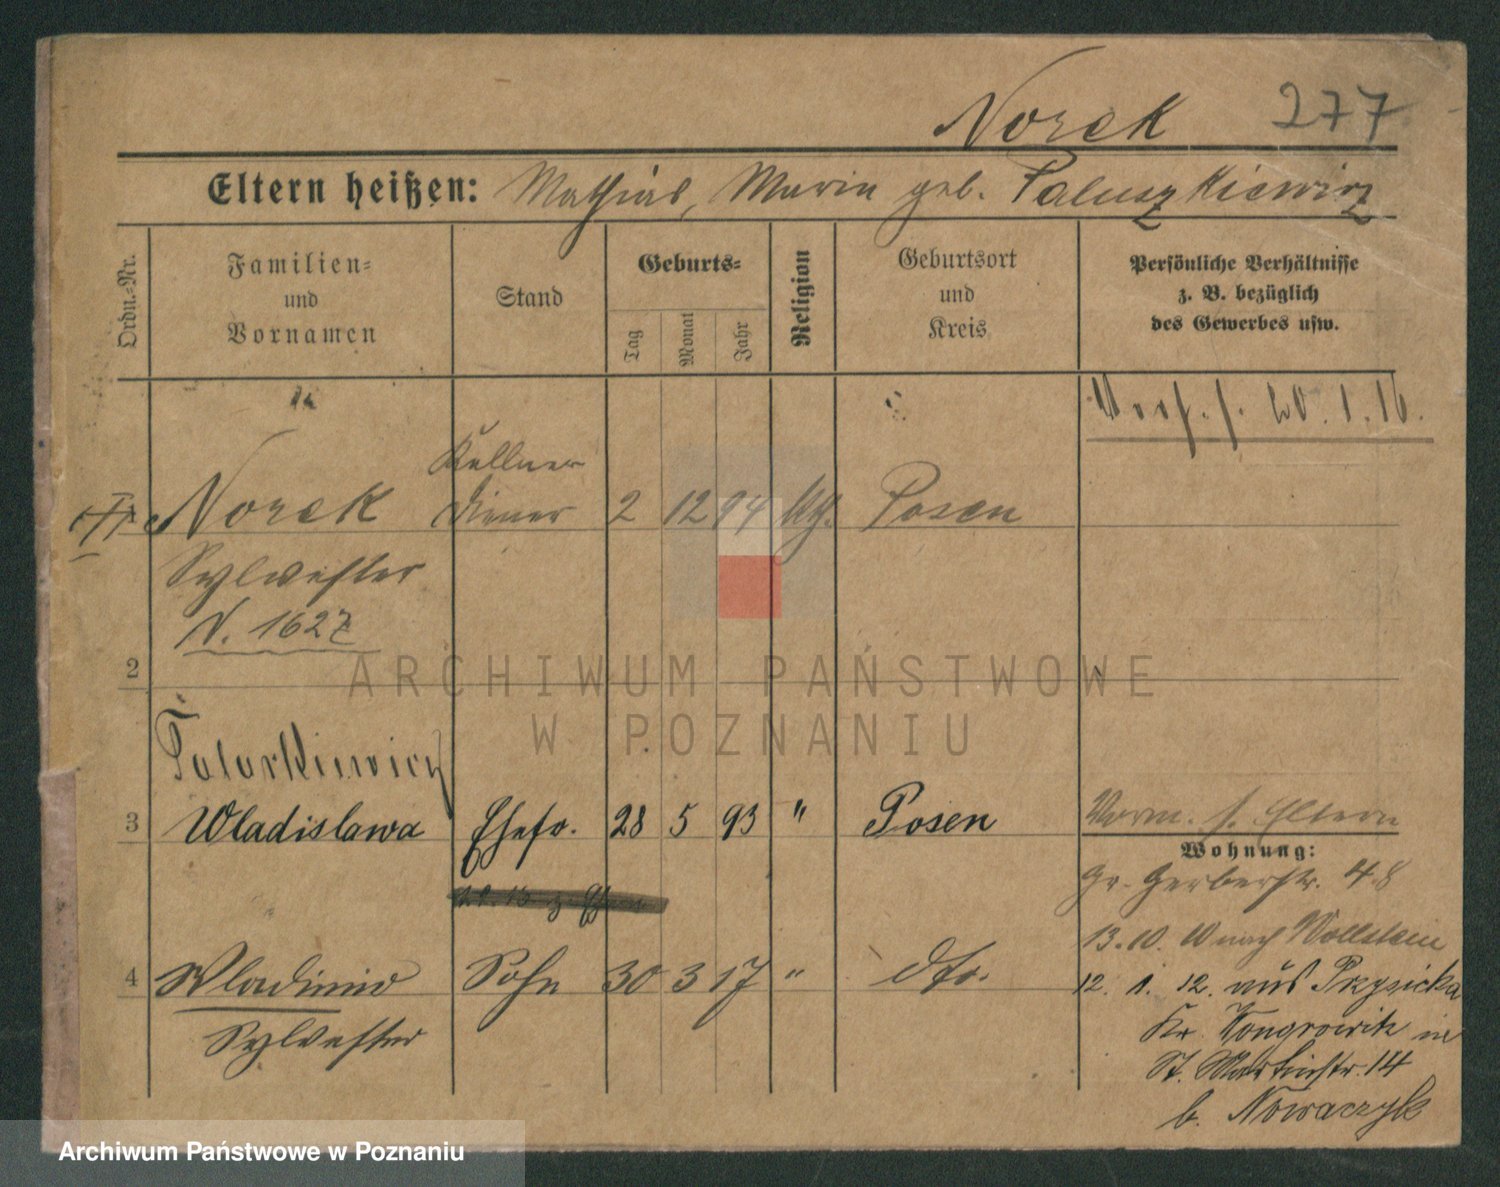 Norek 277
Eltern heißen: Mathias, Maria geb. Paluszkiewicz
Ordn.-Nr.
Familien-
und
Vornamen
Stand
Geburts-
Tag
Monat
Jahr
Religion
Geburtsort
und
Kreis
Persönliche Verhältnisse
z. B. bezüglich
des Gewerbes usw.
20.1.16.
Kellner
Norek Diener 2 12 94 Posen
Sylvester
V. 1627
2
Tatarkiewicz
3 Wladislawa Ehefr. 28 5 93 " Posen
Vorm. s. Eltern
Wohnung:
Gr. Gerberstr. 48
13.10. 10 nach Wollstein
4 Wladimir Sohn 30 3 17 " dto.
12. 1. 12. aus Przysieka
Sylvester
Kr. Wongrowitz in
St. Martinstr. 14
b. Nowaczyk
ARCHIWUM PAŃSTWOWE
W POZNANIU
Archiwum Państwowe w Poznaniu